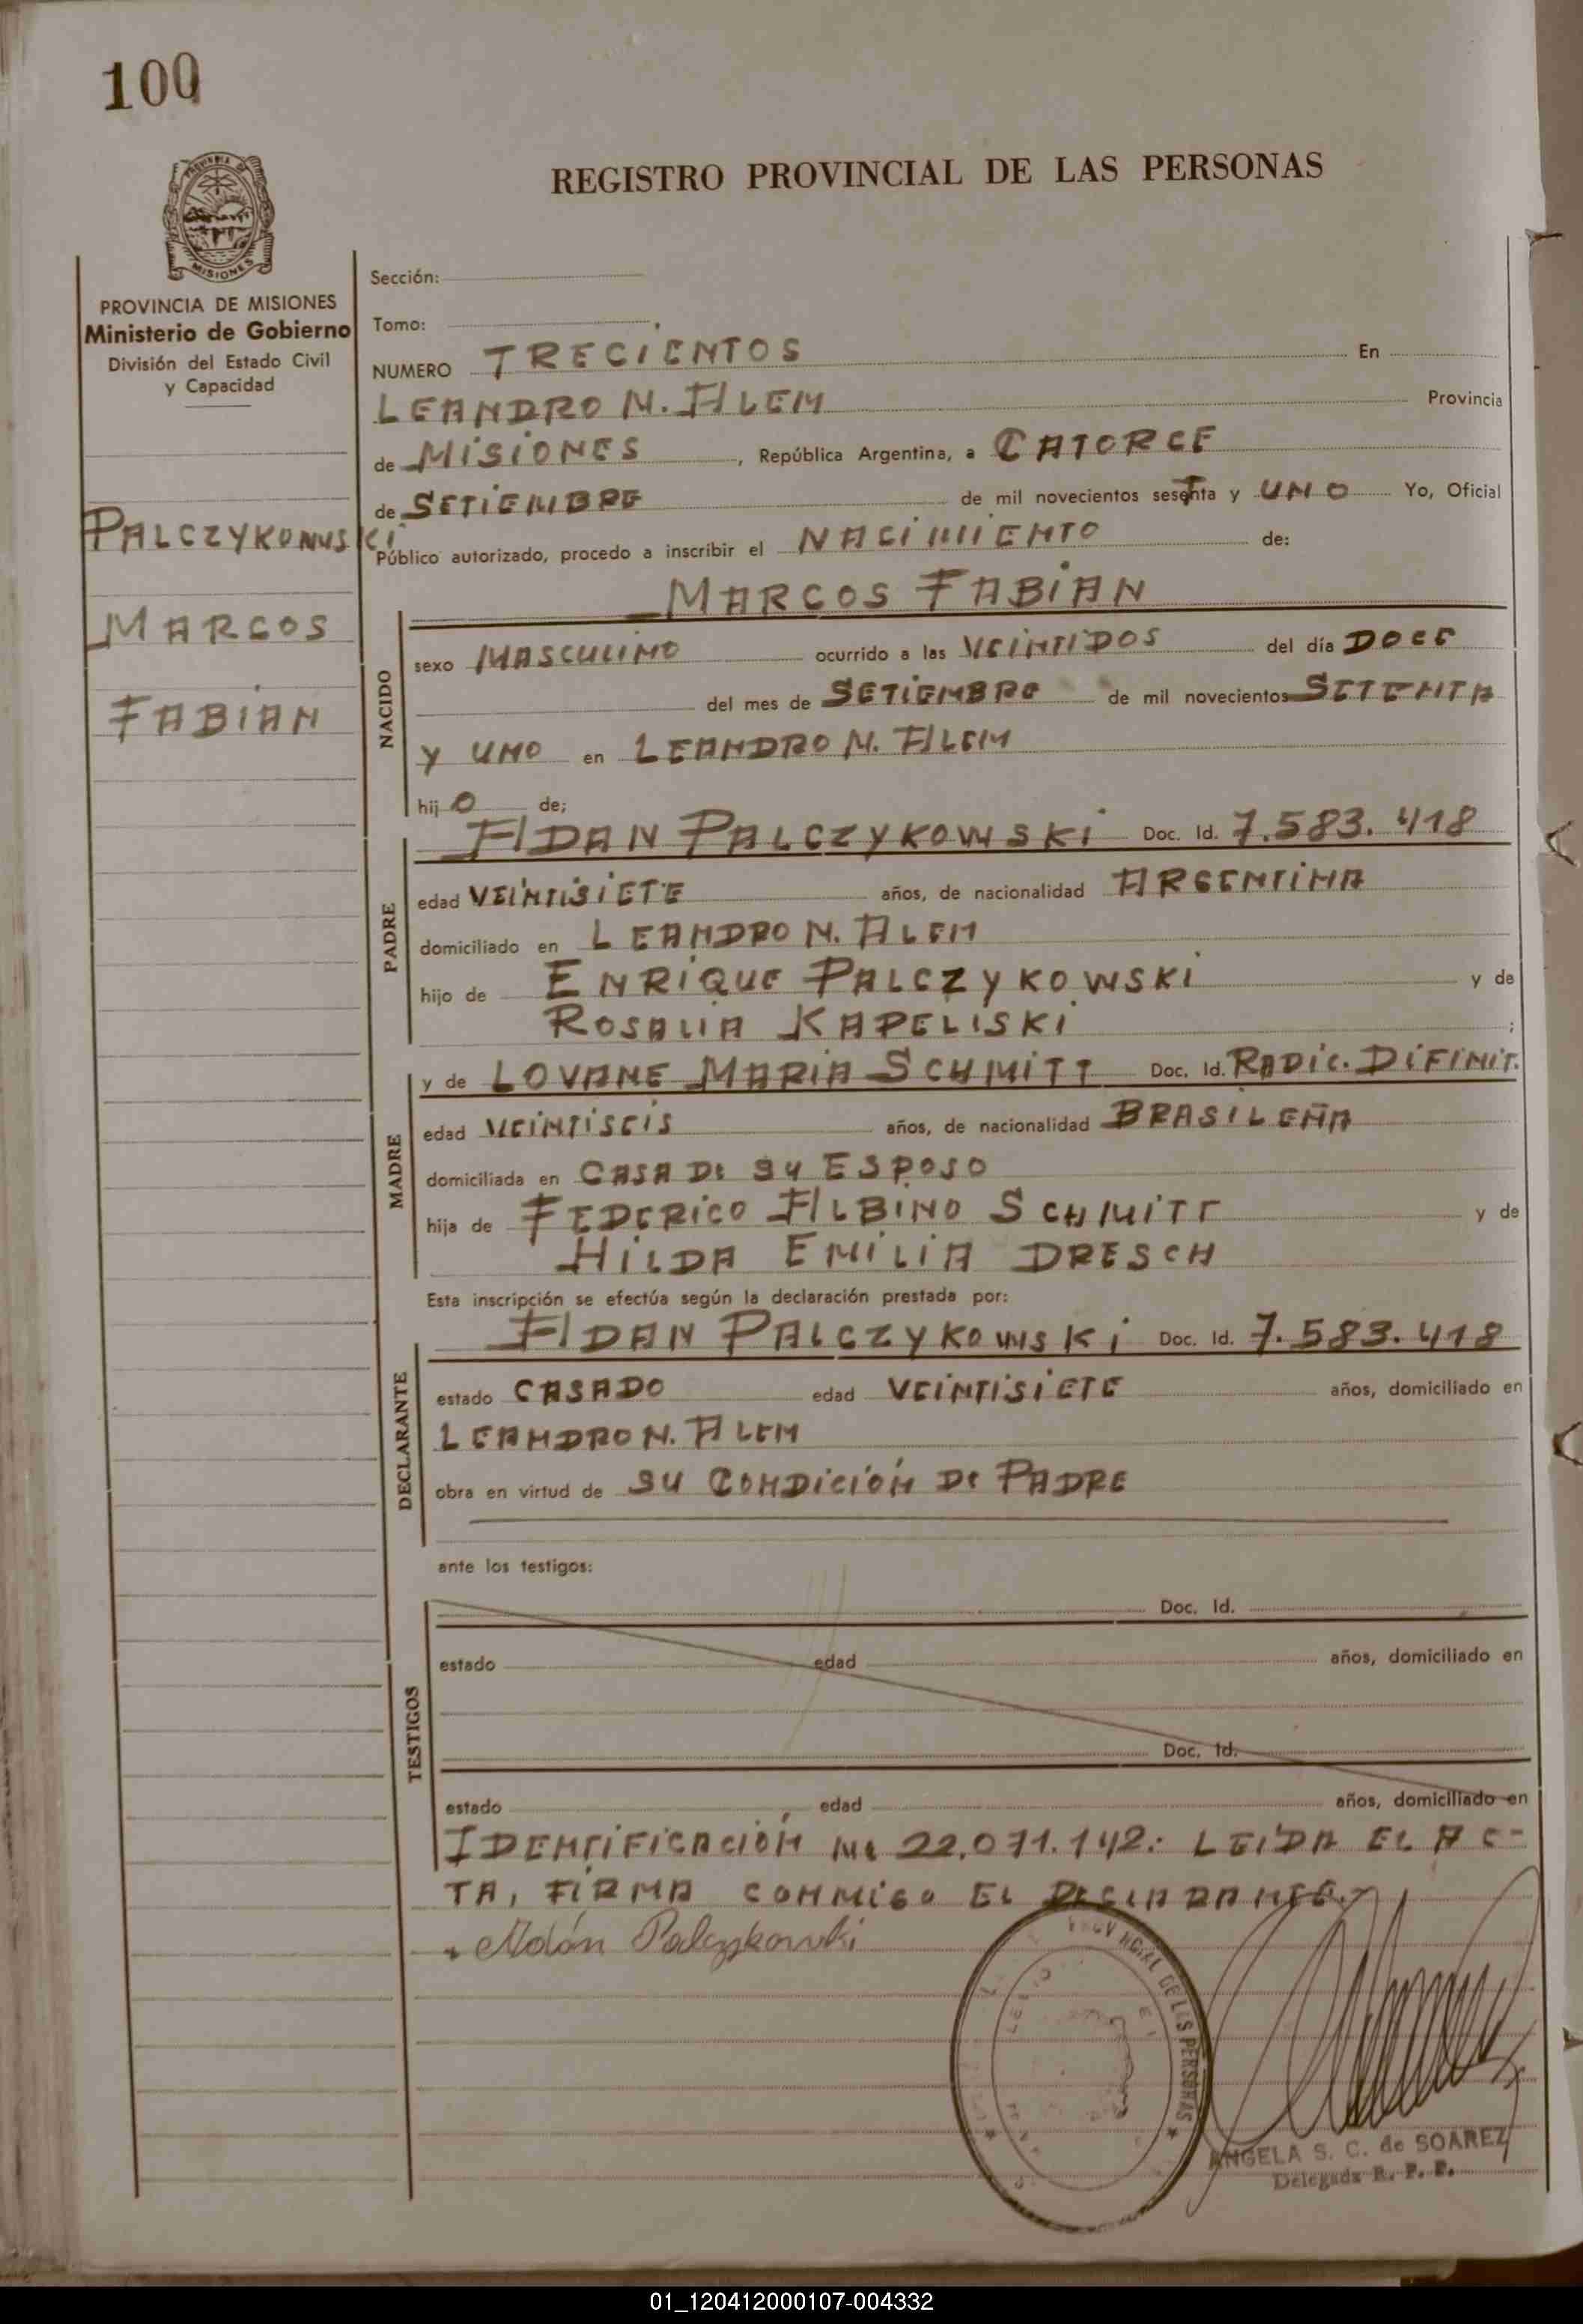 100
REGISTRO PROVINCIAL DE LAS PERSONAS
PROVINCIA DE
MISIONES
PROVINCIA DE MISIONES
Ministerio de Gobierno
División del Estado Civil
y Capacidad
PALCZYKOWSKI
MARCOS
FABIAN
Sección:
Tomo:
NUMERO TRECIENTOS En
LEANDRO N. ALEM Provincia
de MISIONES, República Argentina, a CATORCE
de SETIEMBRE de mil novecientos sesenta y UNO Yo, Oficial
Público autorizado, procedo a inscribir el NACIMIENTO de:
MARCOS FABIAN
NACIDO
sexo MASCULINO ocurrido a las VEINTIDOS del día DOCE
del mes de SETIEMBRE de mil novecientos SETENTA
Y UNO en LEANDRO N. ALEM
hij O de;
ADAN PALCZYKOWSKI Doc. Id. 7.583.418
PADRE
edad VEINTISIETE años, de nacionalidad ARGENTINA
domiciliado en LEANDRO N. ALEM
hijo de ENRIQUE PALCZYKOWSKI y de
ROSALIA KAPELISKI ;
MADRE
y de LOVANE MARIA SCHMITT Doc. Id. RADIC. DIFINIT.
edad VEINTISEIS años, de nacionalidad BRASILEÑA
domiciliada en CASA DE SU ESPOSO
hija de FEDERICO ALBINO SCHMITT y de
HILDA EMILIA DRESCH
Esta inscripción se efectúa según la declaración prestada por:
ADAN PALCZYKOWSKI Doc. Id. 7.583.418
DECLARANTE
estado CASADO edad VEINTISIETE años, domiciliado en
LEANDRO N. ALEM
obra en virtud de SU CONDICIÓN DE PADRE
ante los testigos:
TESTIGOS
Doc. Id.
estado edad años, domiciliado en
Doc. Id.
estado edad años, domiciliado en
IDENTIFICACIÓN Nº 22.071.142: LEIDA EL AC-
TA, FIRMA CONMIGO EL DECLARANTE.
Adán Palczykowski
PROVINCIAL DE LAS PERSONAS
ANGELA S. C. de SOAREZ
Delegada R. P. P.
01_120412000107-004332